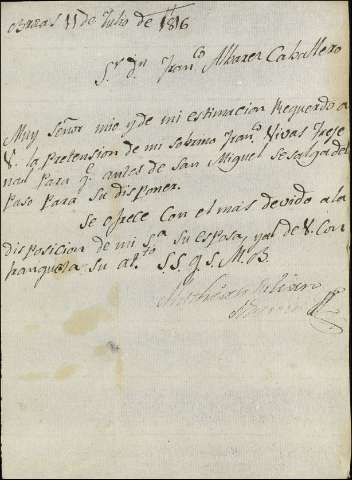 Brozas 11 de Julio de 1816
S.r d.n Fran.co Alvarez Caballero
Muy Señor mio y de mi estimacion Recuerdo a
V. la Pretension de mi sobrino Fran.co Vivas
para q.e antes de San Miguel se salga del
Paso Para su disponer.
Se ofrece Con el mas devido a la
disposicion de mi S.a su esposa, y a la de V. Con
franqueza su at.to S.S. q. S. M. B.